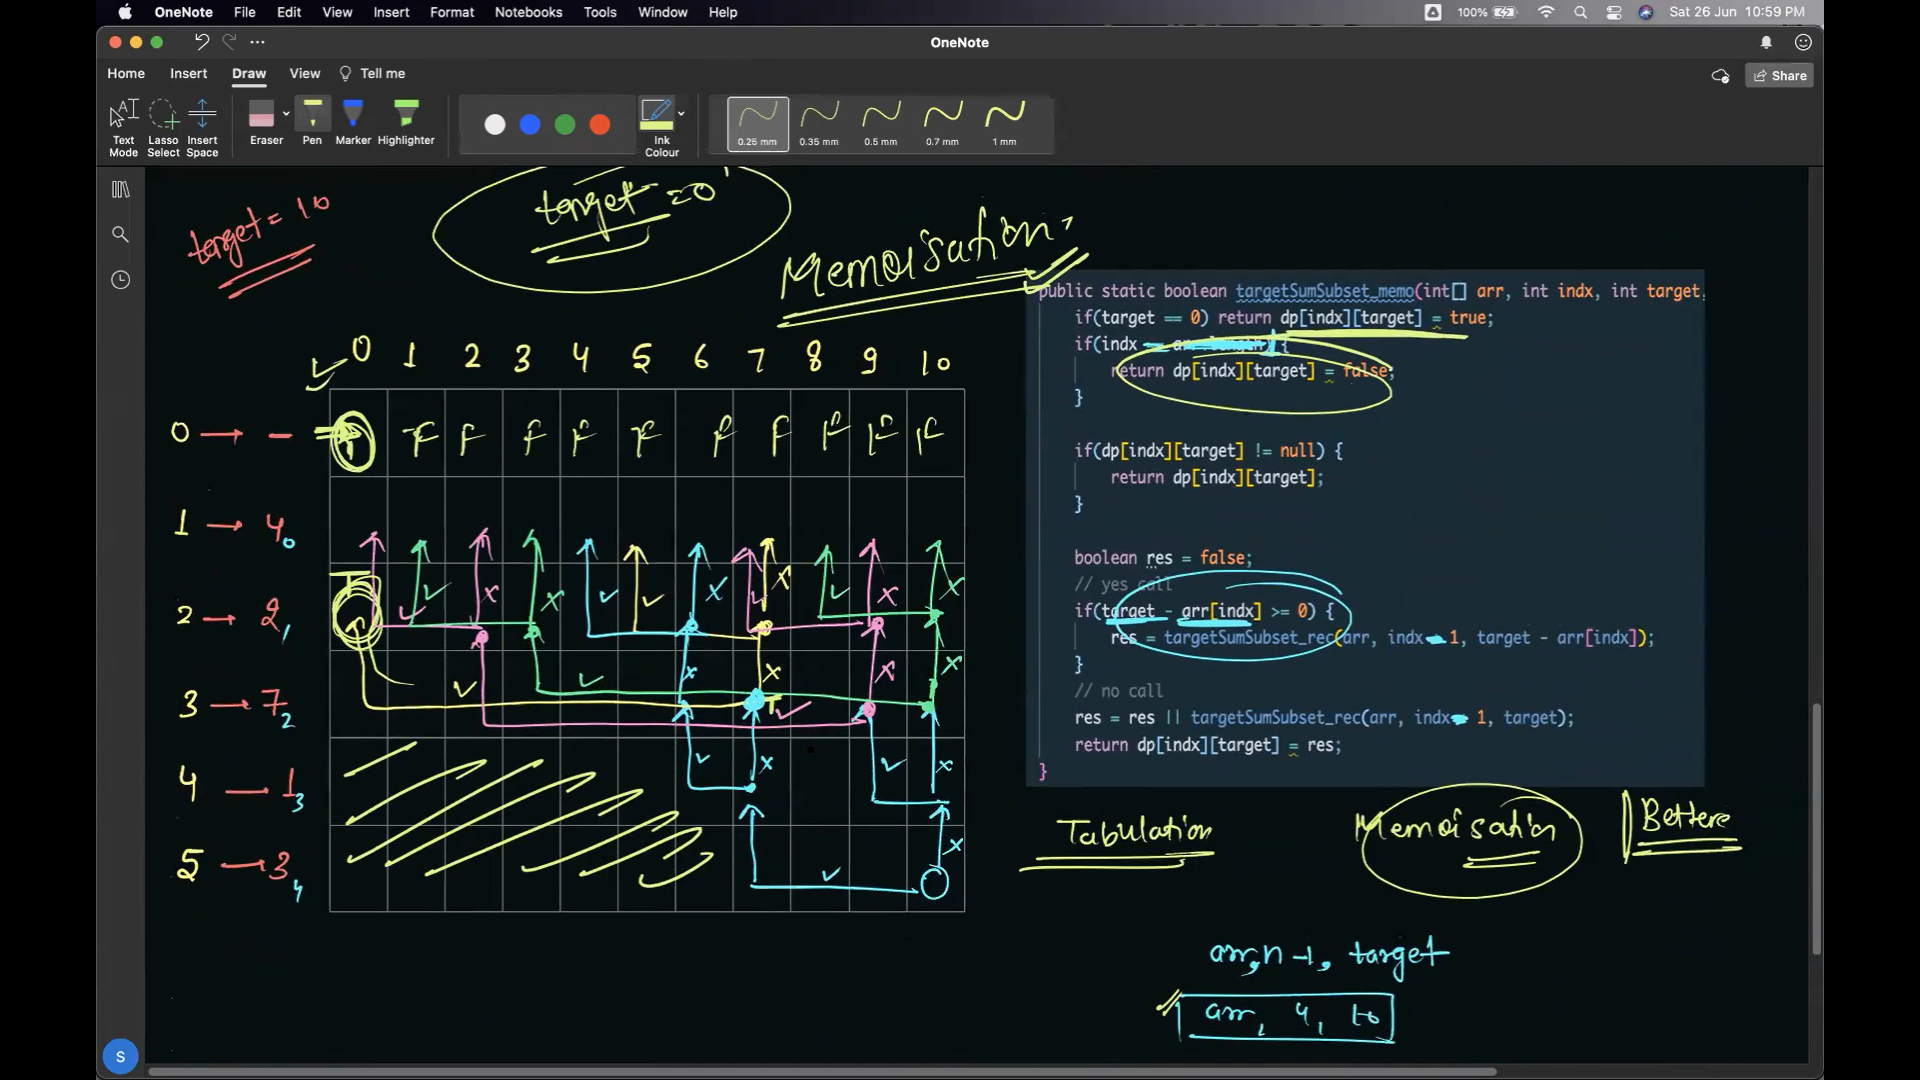 OneNote File Edit View Insert Format Notebooks Tools Window Help 100% Sat 26 Jun 10:59 PM
OneNote
Home Insert Draw View Tell me Share
Text Mode Lasso Select Insert Space Eraser Pen Marker Highlighter Ink Colour 0.25 mm 0.35 mm 0.5 mm 0.7 mm 1 mm
target = 10
target = 0
Memoisation
0 1 2 3 4 5 6 7 8 9 10
0 → - T F F F F F F F F F F
1 → 4 0
2 → 2 1
3 → 7 2
4 → 1 3
5 → 3 4
T
T
public static boolean targetSumSubset_memo(int[] arr, int indx, int target,
if(target == 0) return dp[indx][target] = true;
if(indx {
return dp[indx][target] = false;
}
if(dp[indx][target] != null) {
return dp[indx][target];
}
boolean res = false;
// yes call
if(target - arr[indx] >= 0) {
res = targetSumSubset_rec(arr, indx - 1, target - arr[indx]);
}
// no call
res = res || targetSumSubset_rec(arr, indx - 1, target);
return dp[indx][target] = res;
}
Tabulation Memoisation Bettere
arr, n-1, target
arr, 4, 10
S